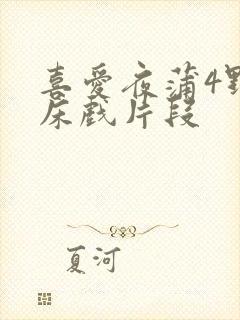 喜爱夜蒲4野
床戏片段
夏河